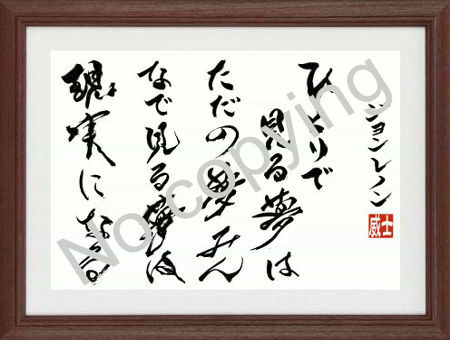 ジョンレノン
ひとりで
見る夢は
ただの夢みん
なで見る夢は
現実になる
威士
No copying